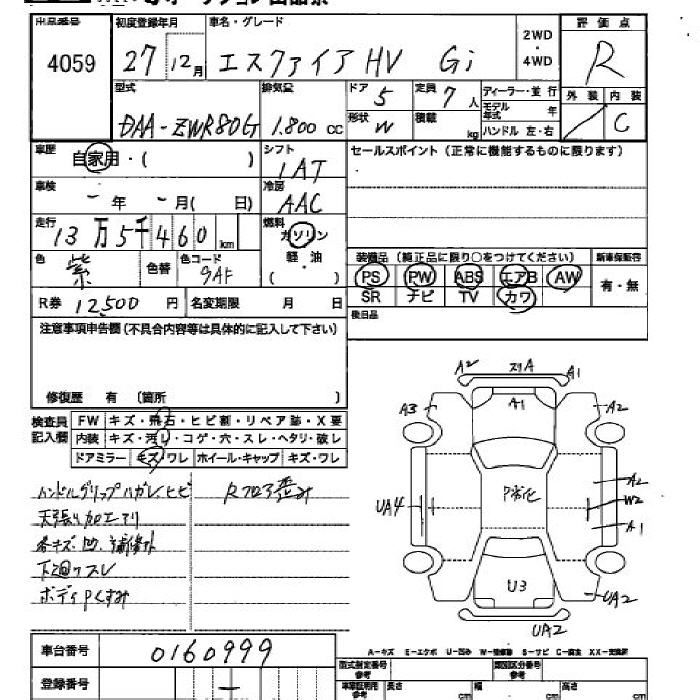 出品番号 初度登録年月 車名・グレード 2WD・4WD 評価点
4059 27 12月 エスクァイア HV Gi R
型式 排気量 ドア 5 定員 7人 ディーラー・並行 外装 内装
DAA-ZWR80G 1.800 CC 形状 W 積載 kg モデル年式 年 ハンドル 左・右 C
車歴 自家用・( ) シフト セールスポイント(正常に機能するものに限ります)
IAT
車検 - 年 - 月( 日) 冷房 AAC
走行 13万5千460km 燃料 ガソリン
色 紫 色替 色コード 9AF 軽・油 ( ) 装備品(純正品に限り○をつけてください) 新車保証書
PS PW ABS エアB AW 有・無
R券 12,500円 名変期限 月 日 SR ナビ TV カワ
注意事項申告欄(不具合内容等は具体的に記入して下さい) 後日品
修復歴 有 〔箇所 〕
検査員記入欄 FW キズ・飛石・ヒビ割・リペア跡・X要
内装 キズ・汚レ・コゲ・穴・スレ・ヘタリ・破レ
ドアミラー キズ・ワレ ホイール・キャップ キズ・ワレ
ハンドルグリップハガレ、ヒビ Rフロア歪み
天張り加工アリ
各キズ、凹、補修跡
下廻りスレ
ボディPくすみ
A2 スリA A1
A3 A1 A2
UA4 P劣化 A2
W2
A1
U3 UA2
UA2
A-キズ E-エクボ U-凹み W-補修跡 S-サビ C-腐食 XX-交換済
車台番号 0160999
型式指定番号 参考 類別区分番号 参考
登録番号 - 車庫証明用 参考 長さ cm 幅 cm 高さ cm